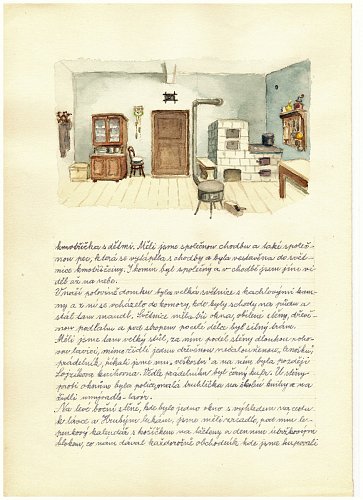 kmotřička s dětmi. Měli jsme společnou chodbu a také společ-
nou pec, která se vytápěla s chodby a byla vestavěna do svět-
nice kmotřičiny. I komín byl společný a v chodbě jsme jím vi-
děli až na nebe.
V naší polovině domku byla velká světnice s kachlovými kam-
ny a z ní se vcházelo do komory, kde byly schody na půdu a
stál tam mandl. Světnice měla tři okna, obílené stěny, dřevě-
nou podlahu a pod stropem po celé délce byl silný trám.
Měli jsme tam velký stůl, za ním podél stěny dlouhou roho-
vou lavici, mimo židlí jednu dřevěnou
prádelník, jehož jsme my, a na něm byla později
knihovna. Vedle prádelníku byl černý kufr. U stěny
proti oknům byla truhlička na školní knihy a na
židli umyvadlo - lavor.
Na levé boční stěně, kde bylo jedno okno s vyhlídkem na cestu
ke lávce a jsme měli zrcadlo, pod ním le-
penkový kalendář s košíčkem na lístky a denním útržkovým
blokem, co nám dával každoročně obchodník kde jsme kupovali